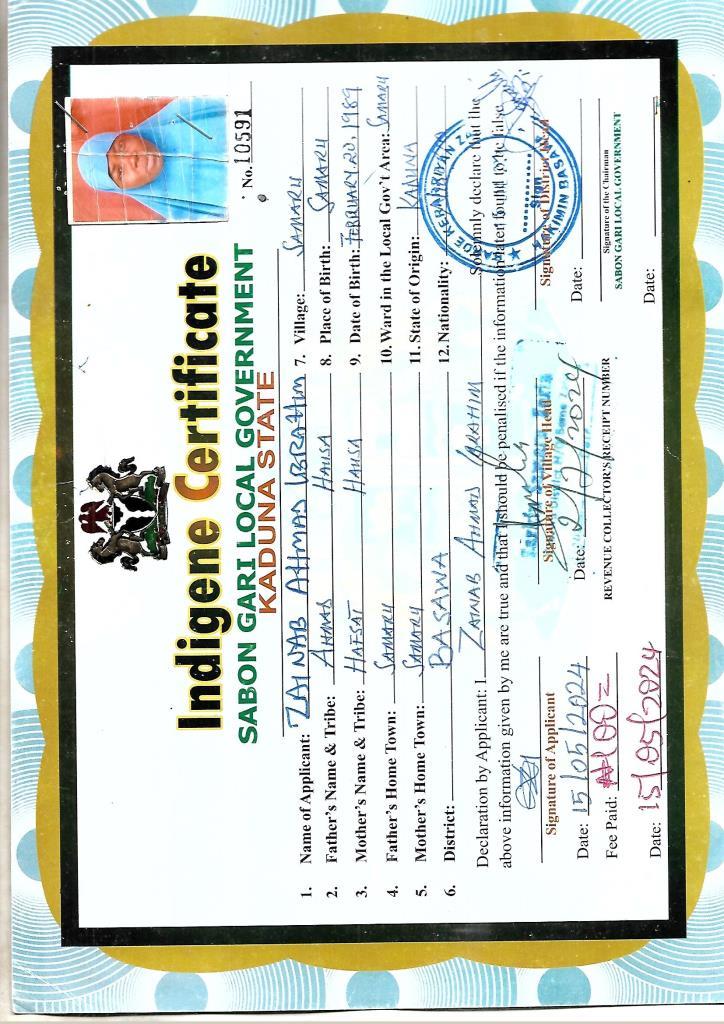 No. 10591
Indigene Certificate
SABON GARI LOCAL GOVERNMENT
KADUNA STATE
1. Name of Applicant: ZAINAB AHMAD IBRAHIM 7. Village: SAMARU
2. Father's Name & Tribe: AHMAD HAUSA 8. Place of Birth: SAMARU
3. Mother's Name & Tribe: HAFSAT HAUSA 9. Date of Birth: FEBRUARY 20, 1989
4. Father's Home Town: SAMARU 10. Ward in the Local Gov't Area: SAMARU
5. Mother's Home Town: SAMARU 11. State of Origin: KADUNA
6. District: BASAWA 12. Nationality:
Declaration by Applicant: I ZAINAB AHMAD IBRAHIM Solemnly declare that the
above information given by me are true and that I should be penalised if the information later found to be false
Signature of Applicant Signature of Village Head Signature of District Head
Date: 15/05/2024 Date: Date:
Fee Paid: ₦100= REVENUE COLLECTOR'S RECEIPT NUMBER
Signature of the Chairman
SABON GARI LOCAL GOVERNMENT
Date: 15/05/2024 Date:
Sign